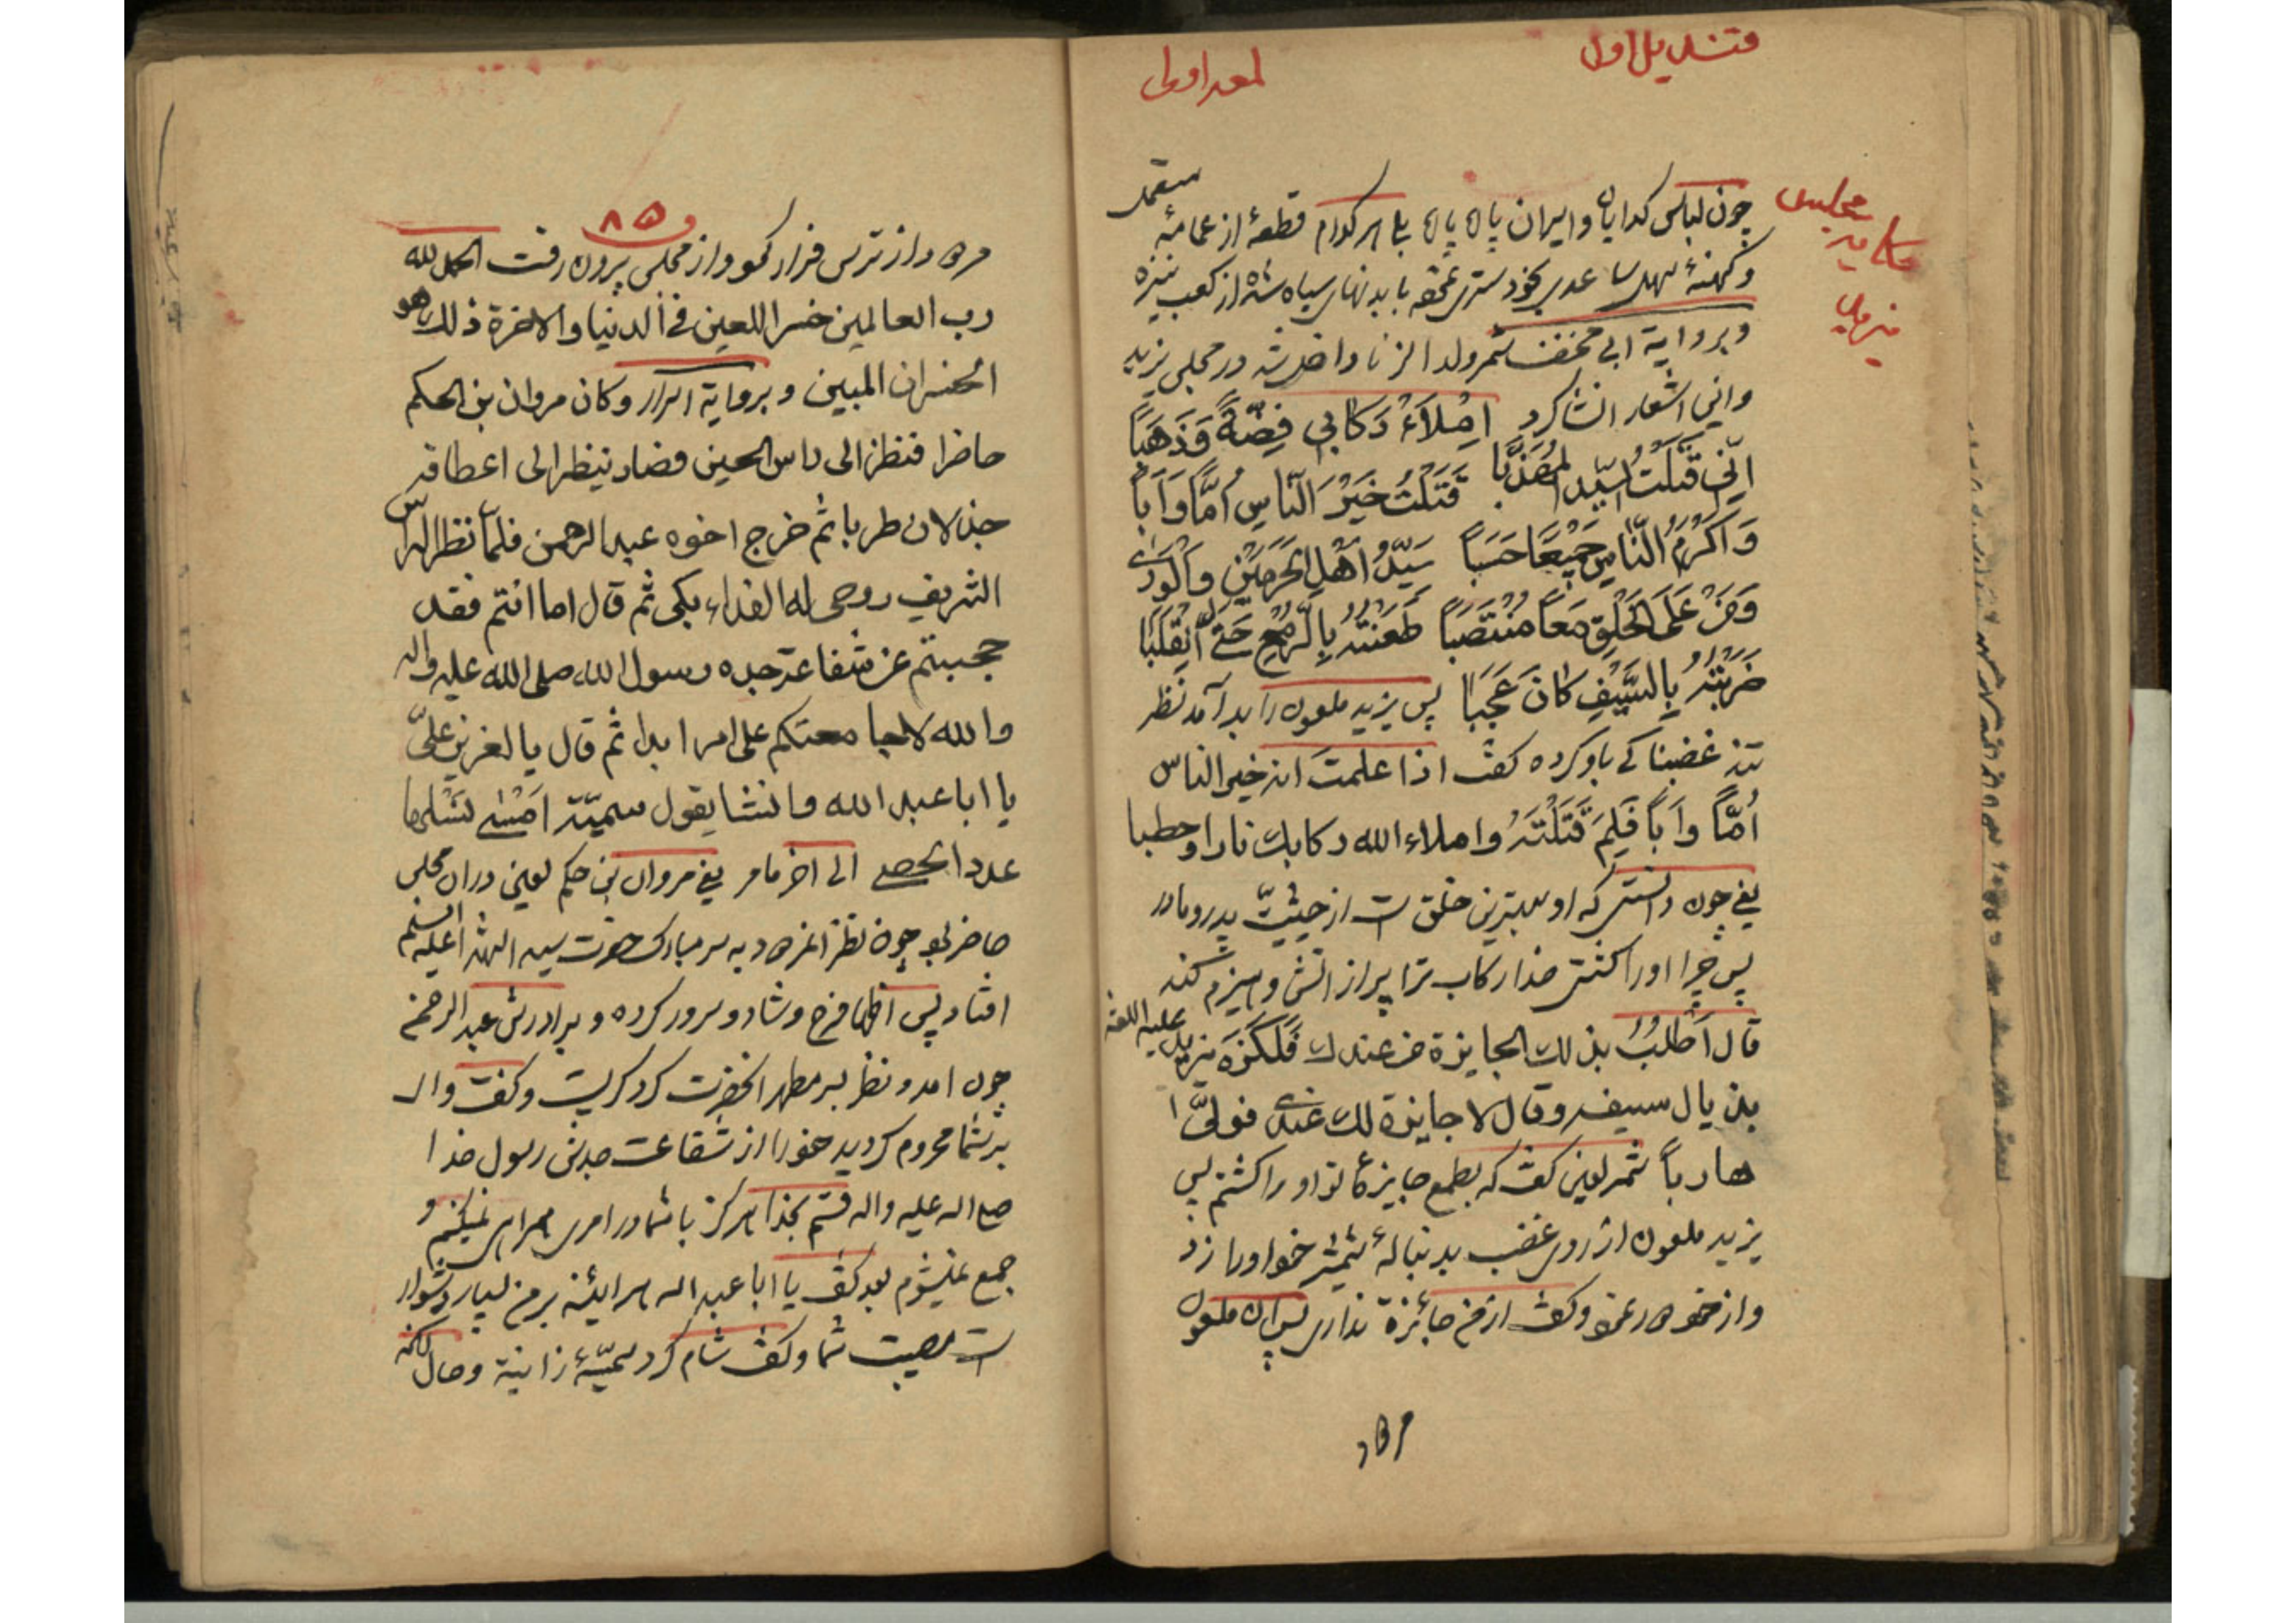 قندیل اول
لمعه اولی
مجلس
یزید
مستعمل
چون لباس کدایان و ایران پاره پاره بلی هر کدام قطعهٔ از عمامهٔ
و کهنهٔ بخود ستری نمود با بدنهای سیاه شده از کعب نیزه
و بروایة ابی مخنف شمر ولد الزنا داخل شد در مجلس یزید
و این اشعار انشا کرد اِمْلَاءْ رَکابی فِضَّةً وَذَهَبًا
اِنّی قَتَلْتُ السَّیِّدَ الْمُهَذَّبا قَتَلْتُ خَیْرَ النّاسِ اُمًّا وَاَبًا
وَاَکْرَمَ النّاسِ جَمیعًا حَسَبًا سَیِّدُ اَهْلِ الْحَرَمَیْنِ وَالْوَرٰی
وَمَنْ عَلَی الْخَلْقِ مَعًا مُنْتَصَبًا طَعَنْتُهُ بِالرُّمْحِ حَتّٰی انْقَلَبا
ضَرَبْتُهُ بِالسَّیْفِ کانَ عَجَبًا پس یزید ملعون را بد آمد نظر
تند غضبناکی باو کرده کفت اذا علمتَ انه خیر الناس
اُمًّا وَاَبًا فَلِمَ قَتَلْتَهُ واملاء الله رکابک نارا وحطبا
یعنی چون دانستی که او بهترین خلق است از حیثیّت پدر و مادر
پس چرا او را کشتی خدا رکاب ترا پر از اتش و هیزم کند
قال اَطْلُبُ بذلک الجایزة من عندک فَلَکَزَهُ یزید علیه اللعنه
بذیال سیفه وقال لا جایزة لک عندی فولّی
هارباً شمر لعین کفت که بطمع جایزهٔ تو او را کشتم پس
یزید ملعون از روی غضب بدنبالهٔ شمشیر خود او را زد
و از خود دور نمود و کفت از من جائزة نداری پس ان ملعون
مرد
۸۵
مرد و از ترس فرار نمود و از مجلس بیرون رفت الحمد لله
رب العالمین خسر اللعین فی الدنیا والاخرة ذلک هو
الخسران المبین و بروایة اسرار وکان مروان بن الحکم
حاضرا فنظر الی راس الحسین فصار ینظر الی اعطافه
جذلان طربا ثم خرج اخوه عبد الرحمن فلمّا نظر الی الراس
الشریف روحی له الفداء بکی ثم قال اما انتم فقد
حجبتم عن شفاعة جده رسول الله صلی الله علیه واله
والله لا جامعتکم علی امر ابدا ثم قال یا لعزیز علیّ
یا ابا عبد الله وانشا یقول سمیّة اَمْسٰی نَسْلُها
عدد الحصی الی اخر ما مر یعنی مروان بن حکم لعین دران مجلس
حاضر بود چون نظر انمردود به سر مبارک حضرت سید الشهدا علیه السلم
افتاد پس اظهار فرح و شاد و سرور کرده و برادرش عبد الرحمن
چون امد و نظر بسر مطهر انحضرت کرد کریست و کفت والله
بد شما محروم کردید خود را از شفاعت جدش رسول خدا
صلی اله علیه واله قسم بخدا هرکز با شما در امری همراهی نمیکنم و
جمع نمیشوم بعد کفت یا ابا عبد اله هراینه بر من بسیار دشوار
است مصیبت شما و کفت شام کرد سمیّهٔ زانیة و حال انکه